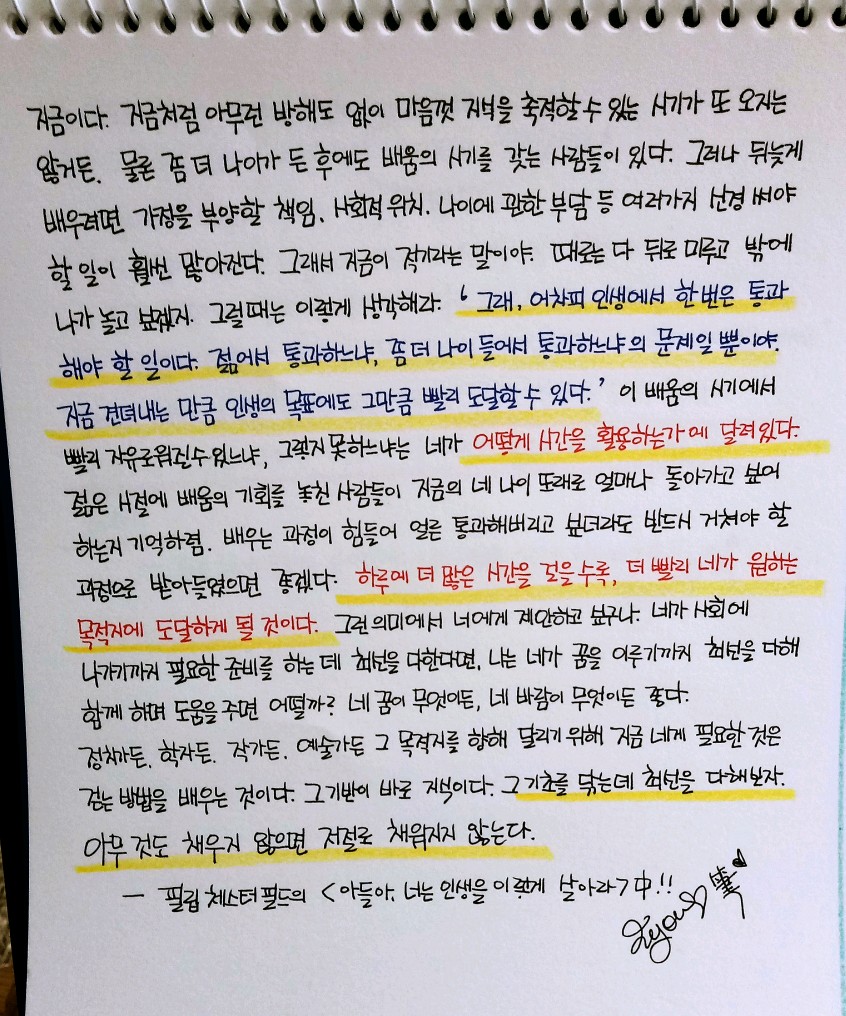 지금이다. 지금처럼 아무런 방해도 없이 마음껏 지식을 축적할 수 있는 시기가 또 오지는
않거든. 물론 좀 더 나이가 든 후에도 배움의 시기를 갖는 사람들이 있다. 그러나 뒤늦게
배우려면 가정을 부양할 책임, 사회적 위치. 나이에 관한 부담 등 여러가지 신경 써야
할 일이 훨씬 많아진다. 그래서 지금이 적기라는 말이야. 때로는 다 뒤로 미루고 밖에
나가 놀고 싶겠지. 그럴때는 이렇게 생각해라. ‘그래, 어차피 인생에서 한번은 통과
해야 할 일이다. 젊어서 통과하느냐, 좀 더 나이 들어서 통과하느냐의 문제일 뿐이야.
지금 견뎌내는 만큼 인생의 목표에도 그만큼 빨리 도달할 수 있다.’ 이 배움의 시기에서
빨리 자유로워질수있느냐, 그렇지 못하느냐는 네가 어떻게 시간을 활용하는가에 달려있다.
젊은 시절에 배움의 기회를 놓친 사람들이 지금의 네 나이 또래로 얼마나 돌아가고 싶어
하는지 기억하렴. 배우는 과정이 힘들어 얼른 통과해버리고 싶더라도 반드시 거쳐야 할
과정으로 받아들였으면 좋겠다. 하루에 더 많은 시간을 걸을수록, 더 빨리 네가 원하는
목적지에 도달하게 될 것이다. 그런 의미에서 너에게 제안하고 싶구나. 네가 사회에
나가기까지 필요한 준비를 하는 데 최선을 다한다면, 나는 네가 꿈을 이루기까지 최선을 다해
함께 하며 도움을 주면 어떨까? 네 꿈이 무엇이든, 네 바람이 무엇이든 좋다.
정치가든, 학자든. 작가든. 예술가든 그 목적지를 향해 달리기 위해 지금 네게 필요한 것은
걷는 방법을 배우는 것이다. 그기반이 바로 지식이다. 그 기초를 닦는데 최선을 다해보자.
아무 것도 채우지 않으면 저절로 채워지지 않는다.
— 필립 체스터필드의 <아들아, 너는 인생을 이렇게 살아라> 中!!